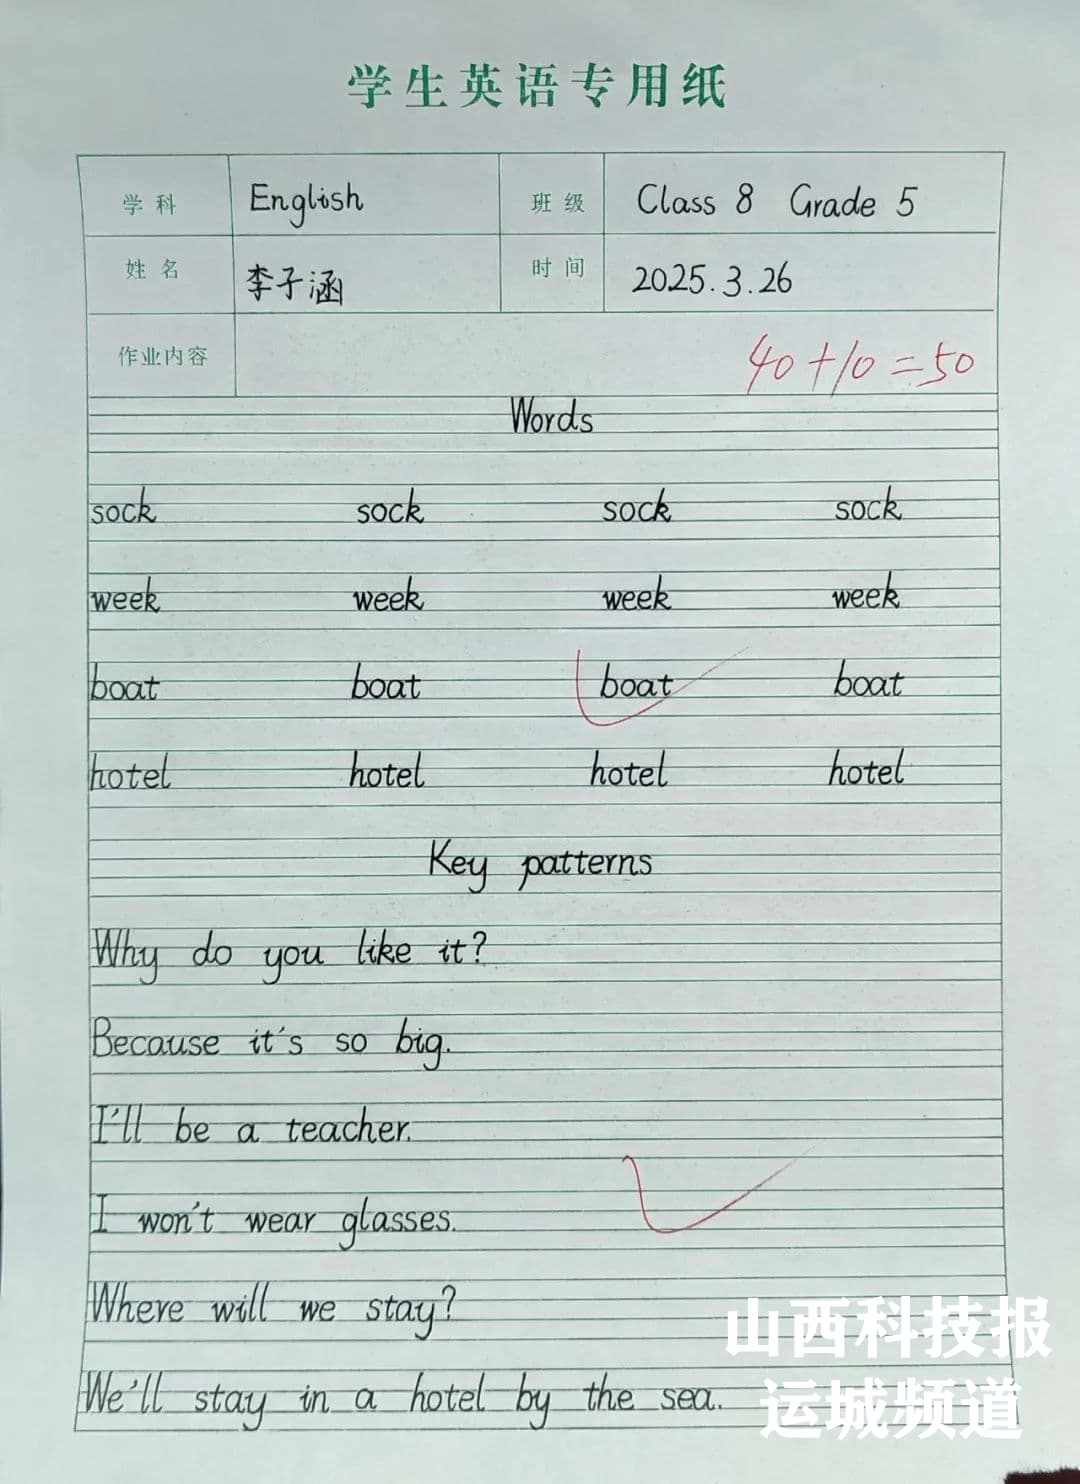 学生英语专用纸
学科 English 班级 Class 8 Grade 5
姓名 李子涵 时间 2025.3.26
作业内容 40+10=50
Words
sock sock sock sock
week week week week
boat boat boat boat
hotel hotel hotel hotel
Key patterns
Why do you like it?
Because it's so big.
I'll be a teacher.
I won't wear glasses.
Where will we stay?
We'll stay in a hotel by the sea.
山西科技报
运城频道